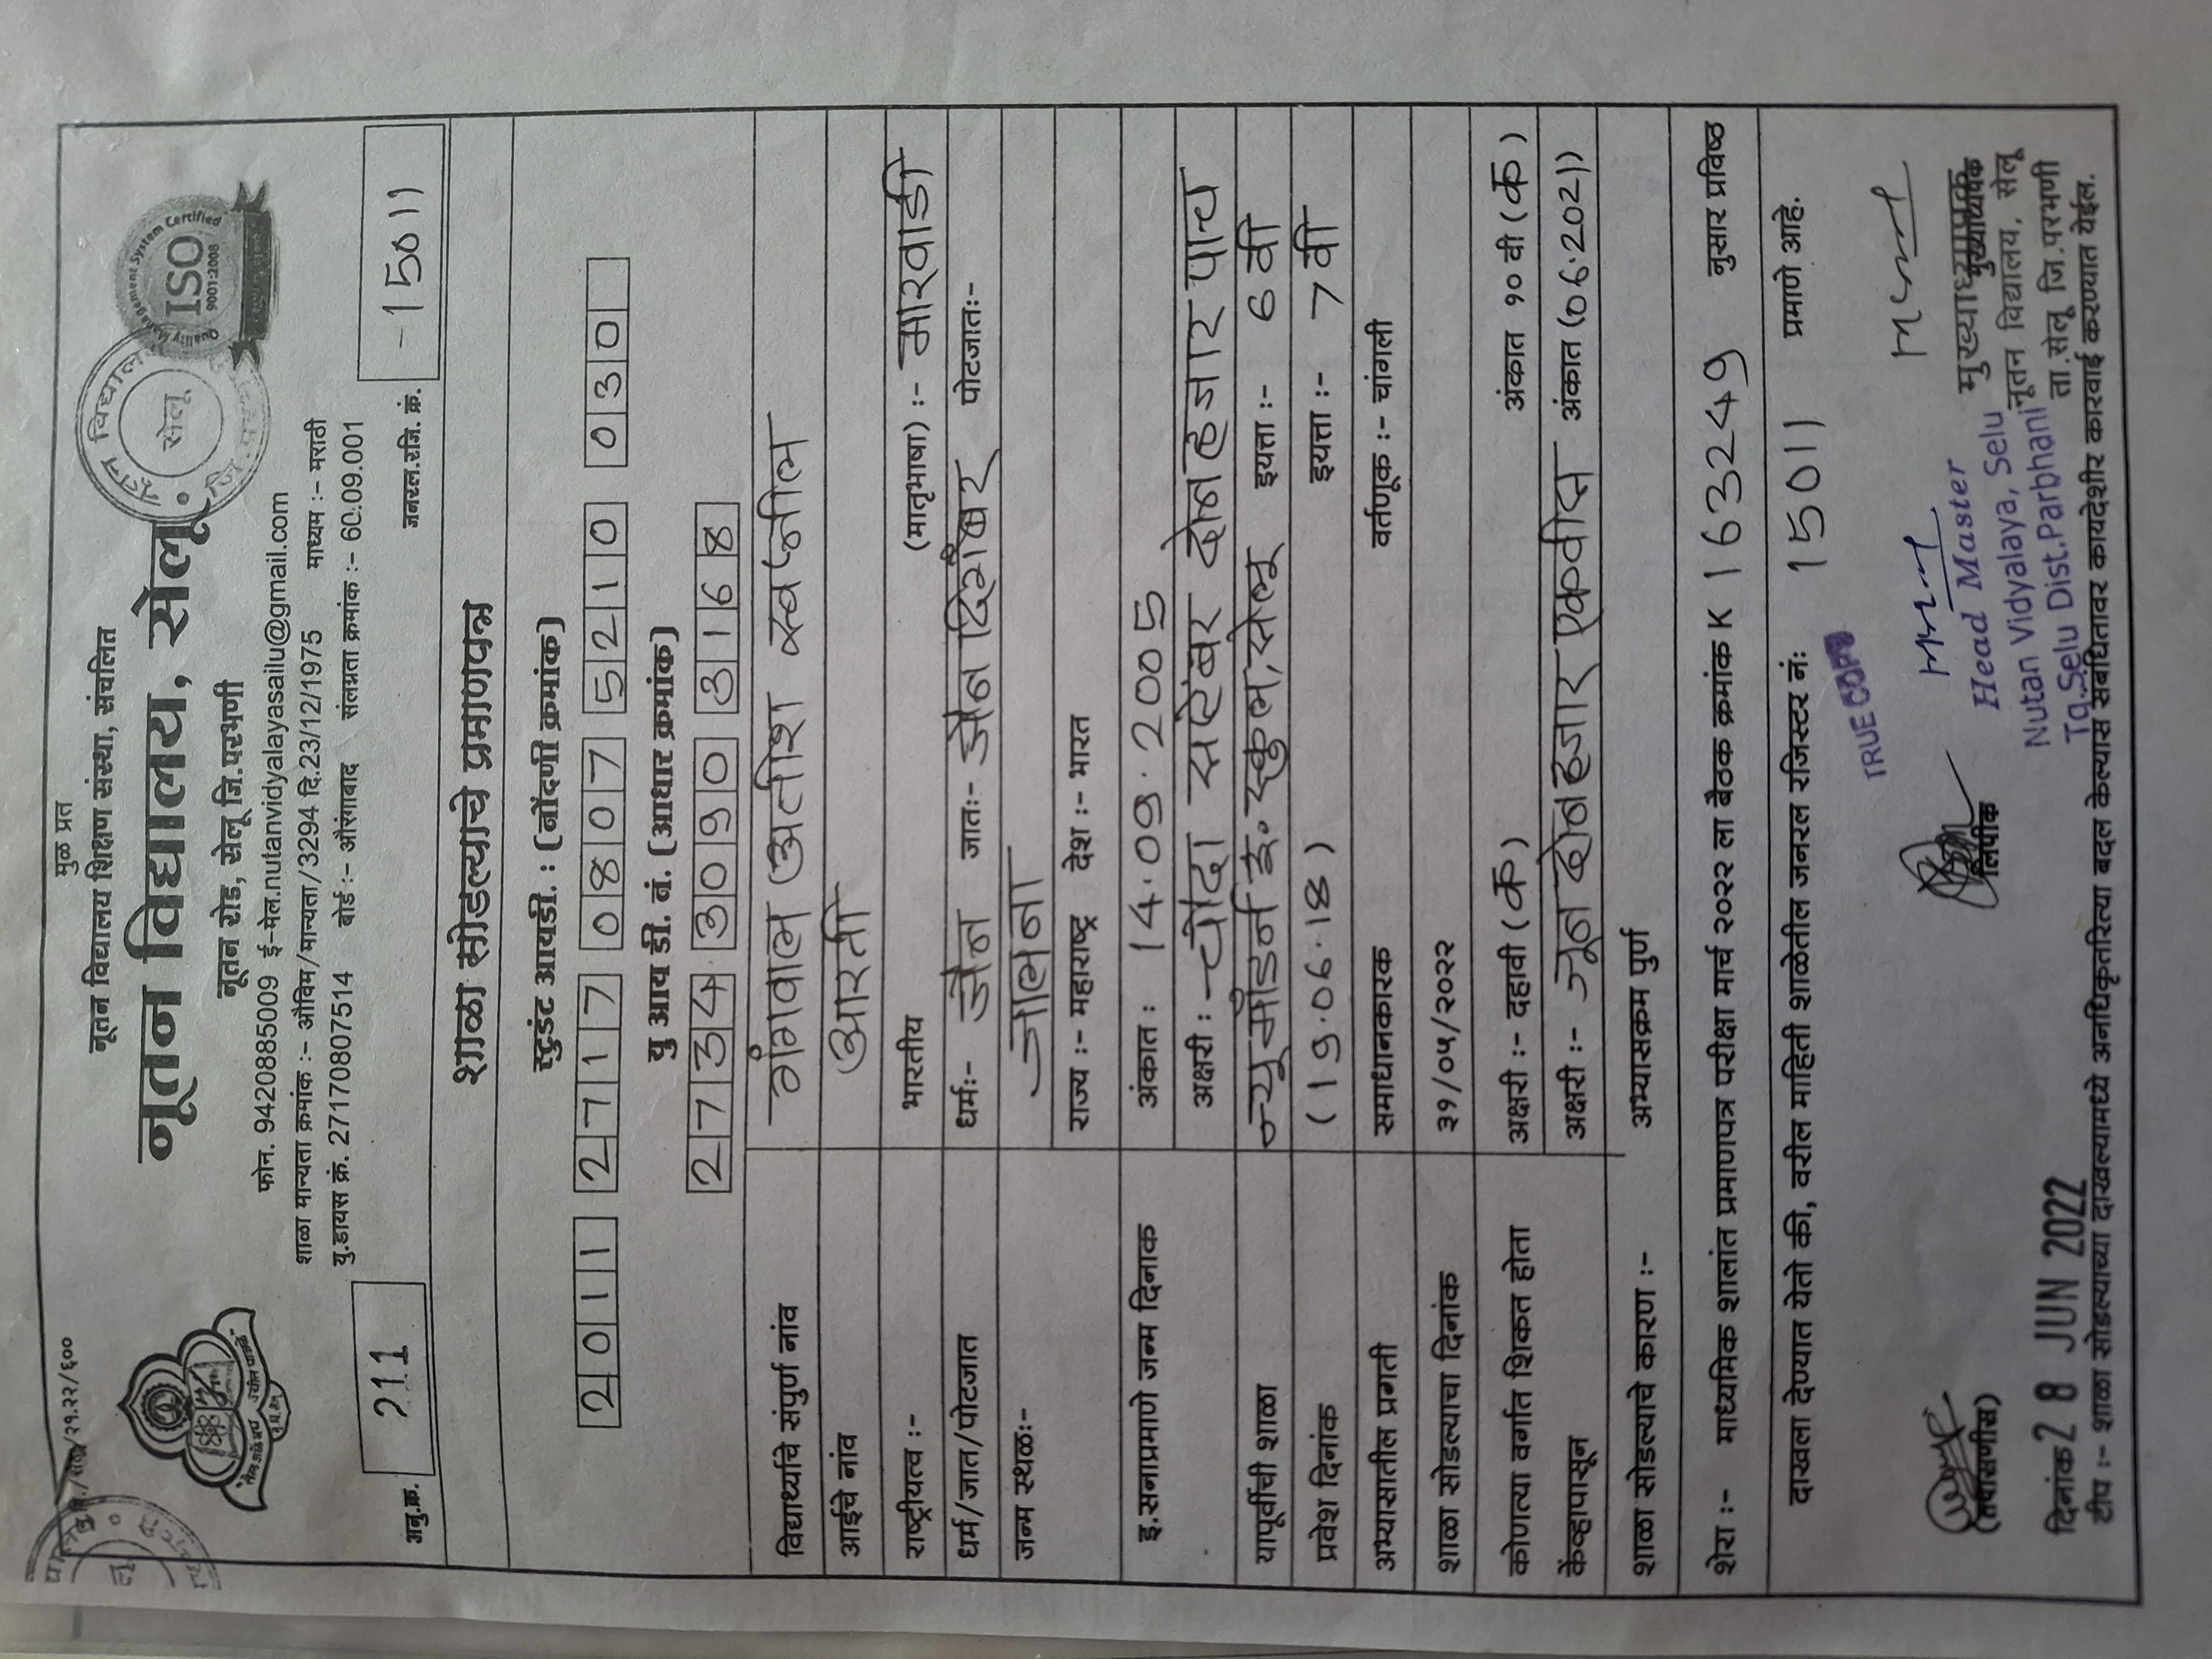 मुळ प्रत
नूतन विद्यालय शिक्षण संस्था, संचलित
नूतन विद्यालय, सेलू.
नूतन रोड, सेलू जि.परभणी
फोन. 9420885009 ई-मेल.nutanvidyalayasailu@gmail.com
शाळा मान्यता क्रमांक :- औविम/मान्यता/3294 दि.23/12/1975 माध्यम :- मराठी
यु.डायस क्रं. 27170807514 बोर्ड :- औरंगाबाद संलग्नता क्रमांक :- 60.09.001
अनु.क्र. 211 जनरल.रजि. क्रं. -15011
Quality Management System Certified
ISO
9001:2008
नूतन विद्यालय
सेलू
शाळा सोडल्याचे प्रमाणपत्र
स्टुडंट आयडी. : (नोंदणी क्रमांक)
2011 2717 0807 5210 030
यु आय डी. नं. (आधार क्रमांक)
2734 3090 3168
विद्यार्थ्याचे संपुर्ण नांव गंगवाल अतीश स्वप्नील
आईचे नांव आरती
राष्ट्रीयत्व :- भारतीय (मातृभाषा) :- मारवाडी
धर्म/जात/पोटजात धर्मः- जैन जातः- जैन दिगंबर पोटजातः-
जन्म स्थळः- जालना
राज्य :- महाराष्ट्र देश :- भारत
इ.सनाप्रमाणे जन्म दिनाक अंकात : 14.09.2005
अक्षरी :- चौदा सप्टेंबर दोन हजार पाच
यापूर्वीची शाळा न्यू मॉडर्न इं. स्कुल, सेलू इयत्ता :- 6 वी
प्रवेश दिनांक (19.06.18) इयत्ता :- 7 वी
अभ्यासातील प्रगती समाधानकारक वर्तणूक :- चांगली
शाळा सोडल्याचा दिनांक ३१/०५/२०२२
कोणत्या वर्गात शिकत होता अक्षरी :- दहावी (क) अंकात १० वी (क)
केंव्हापासून अक्षरी :- जून दोन हजार एकवीस अंकात (06.2021)
शाळा सोडल्याचे कारण :- अभ्यासक्रम पुर्ण
शेरा :- माध्यमिक शालांत प्रमाणपत्र परीक्षा मार्च २०२२ ला बैठक क्रमांक K 163249 नुसार प्रविष्ठ
दाखला देण्यात येतो की, वरील माहिती शाळेतील जनरल रजिस्टर नं: 15011 प्रमाणे आहे.
TRUE COPY
(तपासणीस) लिपीक Head Master मुख्याध्यापक
Nutan Vidyalaya, Selu नूतन विद्यालय, सेलू
Tq.Selu Dist.Parbhani ता.सेलू जि.परभणी
दिनांक 28 JUN 2022
टीप :- शाळा सोडल्याच्या दाखल्यामध्ये अनधिकृतरित्या बदल केल्यास संबंधितावर कायदेशीर कारवाई करण्यात येईल.